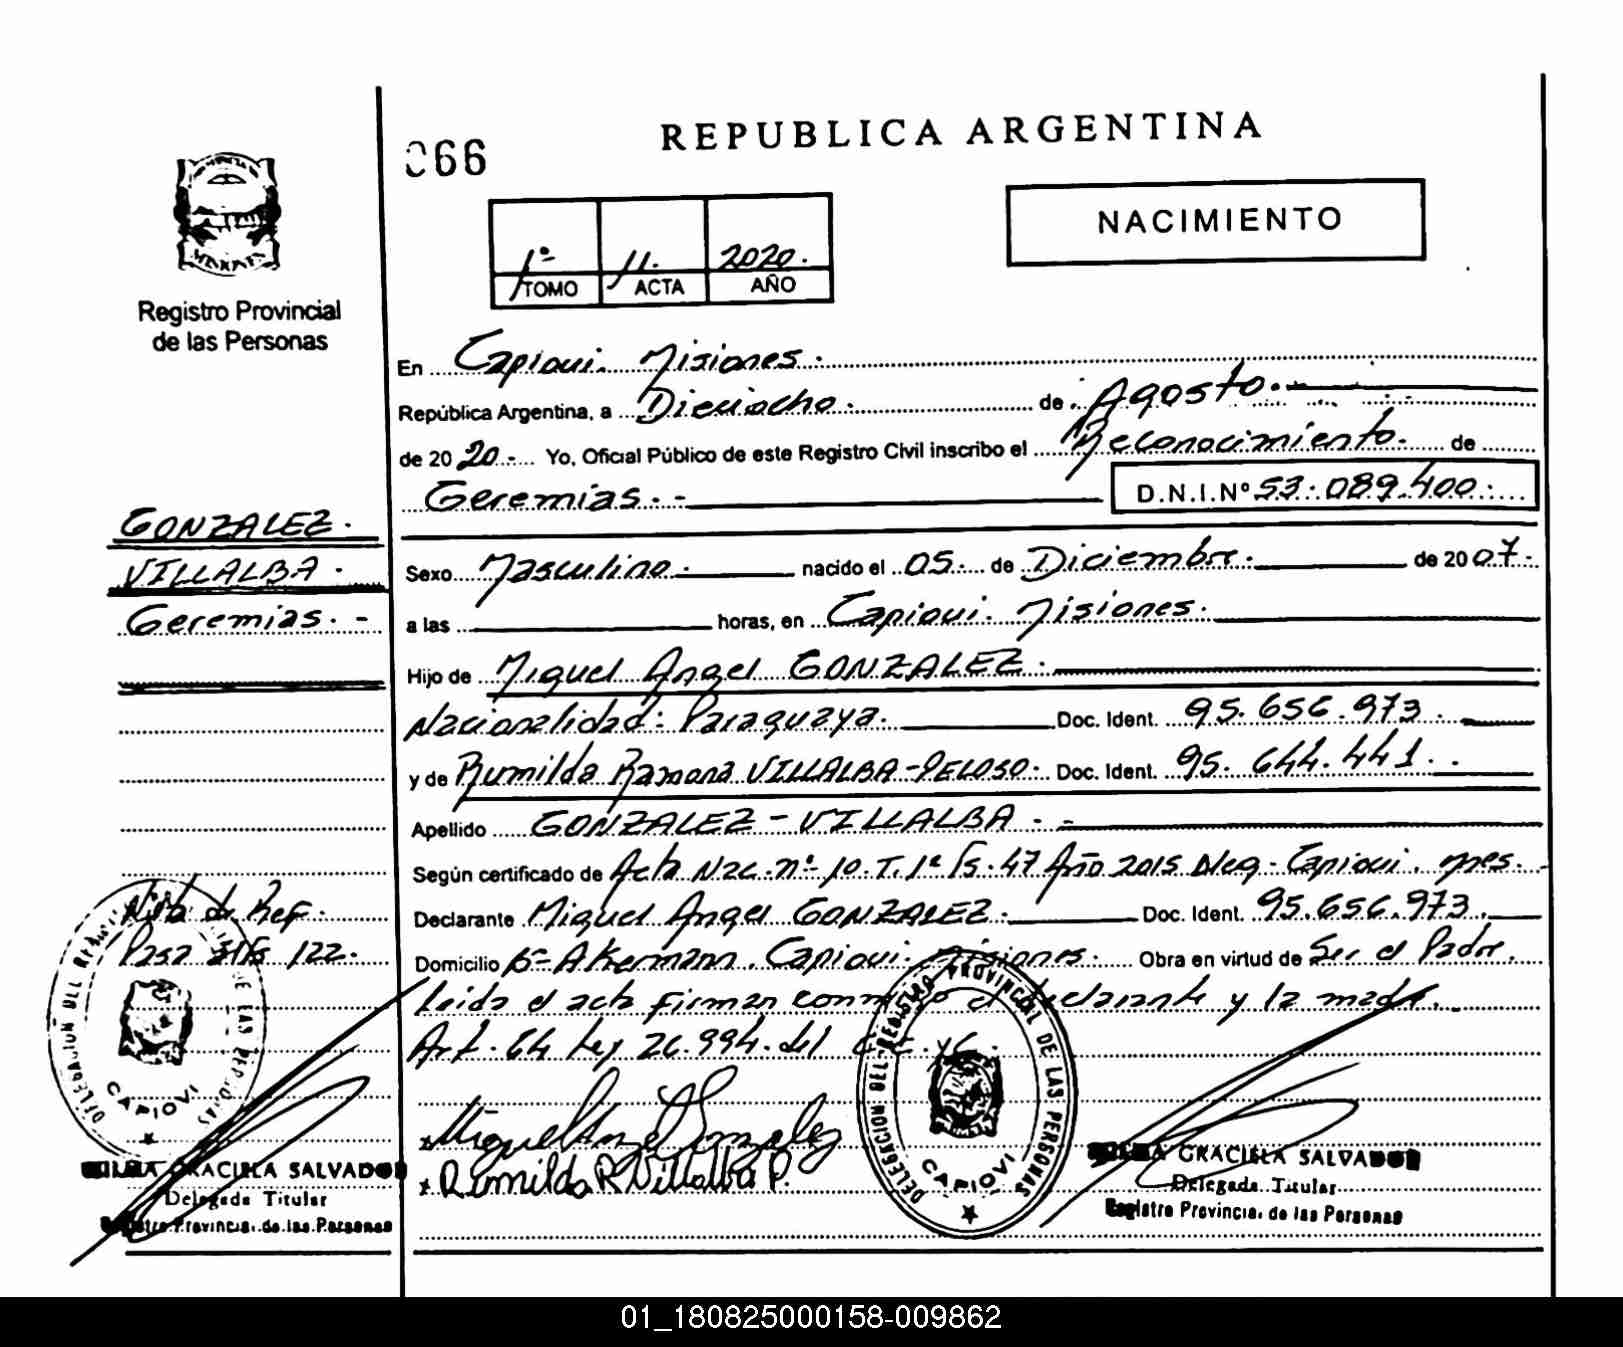 REPUBLICA ARGENTINA
066
NACIMIENTO
1º 11. 2020.
TOMO ACTA AÑO
MISIONES
Registro Provincial
de las Personas
En Capiovi. Misiones.
República Argentina, a Dieciocho. de Agosto.
de 20 20.- Yo, Oficial Público de este Registro Civil inscribo el Reconocimiento. de
Geremias.- D.N.I.Nº 53.089.400.
GONZALEZ.
VILLALBA.
Geremias.-
Sexo Masculino. nacido el 05. de Diciembre. de 20 07.
a las horas, en Capiovi. Misiones.
Hijo de Miguel Angel GONZALEZ.
Nacionalidad: Paraguaya. Doc. Ident. 95.656.973.
y de Rumilda Ramona VILLALBA-PELOSO. Doc. Ident. 95.644.441.
Apellido GONZALEZ-VILLALBA.-
Según certificado de Acta Nac. nº 10. T. 1º Fs. 47 Año 2015 Deleg. Capiovi. Mnes.
Declarante Miguel Angel GONZALEZ. Doc. Ident. 95.656.973.
Domicilio Bº Akermann. Capiovi. Misiones. Obra en virtud de Ser el Padre.
Leida el acta firman conmigo el declarante y la madre.
Art. 64 Ley 26.994. del C.C. y C.
Nota de Ref.
Pasa al Fs 122.
Miguel Angel Gonzalez
Rumilda R Villalba P.
DELEGACION DEL REGISTRO PROVINCIAL DE LAS PERSONAS
CAPIOVI
GRACIELA SALVADOR
Delegada Titular
Registro Provincial de las Personas
DELEGACION DEL REGISTRO PROVINCIAL DE LAS PERSONAS
CAPIOVI
GRACIELA SALVADOR
Delegada Titular
Registro Provincial de las Personas
01_180825000158-009862